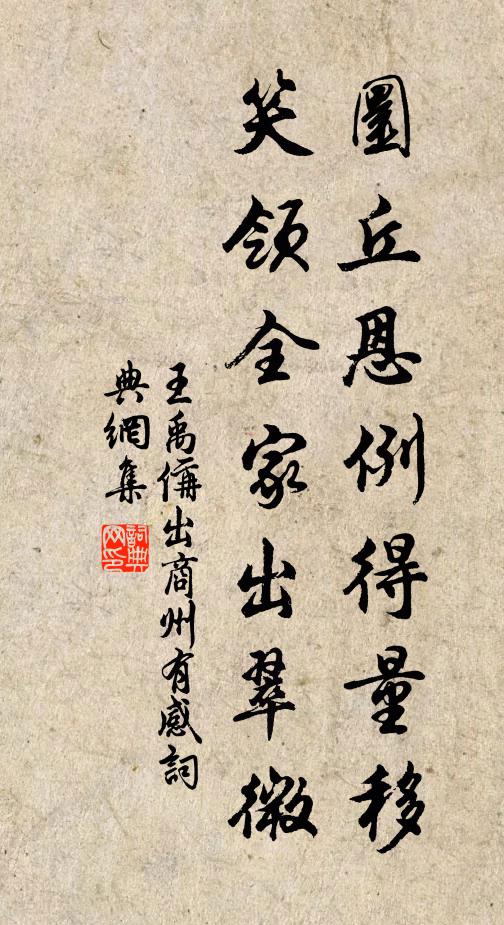 圜丘恩例得量移
笑領全家出翠微
王禹偁出商州有感詞
典網集
詞典
网印